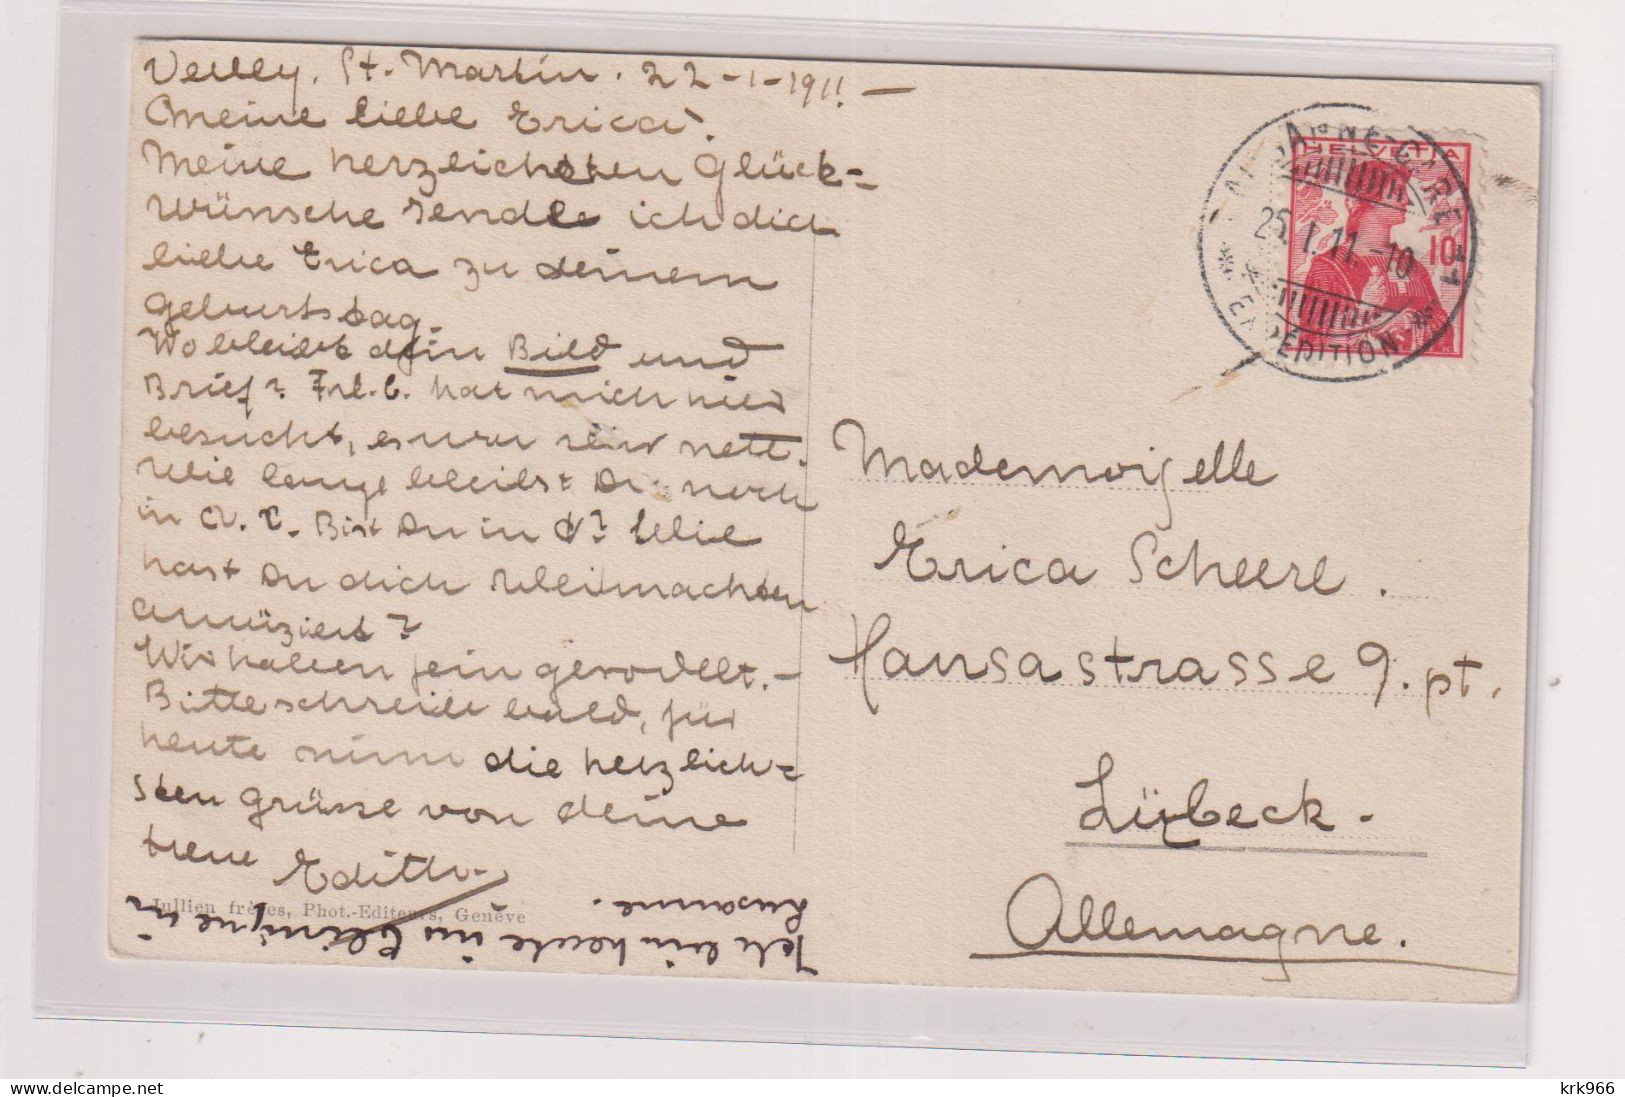 Vevey. St. Martin. 22-1-1911. –
Meine liebe Erica!
Meine herzlichsten Glück-
wünsche sende ich dich
liebe Erica zu deinem
Geburtstag.
Wo bleibt dein Bild und
Brief? Frl. b. hat mich nied
besucht, es war sehr nett.
Wie lange bleibst Du noch
in Bist Du in Wie
hast Du dich Weihnachten
amüziert?
Wir haben fein gerodelt. –
Bitte schreibe bald, für
heute nimm die herzlich-
sten Grüsse von deine
treue Edith.
Jullien frères, Phot.-Editeurs, Genève
Ich bin heute in Clinique in
Lusanne.
LAUSANNE GARE
HELVETIA
10
25.I.11.-10
EXPÉDITION
Mademoiselle
Erica Scheere.
Hansastrasse 9. pt.
Lübeck.
Allemagne.
krk966